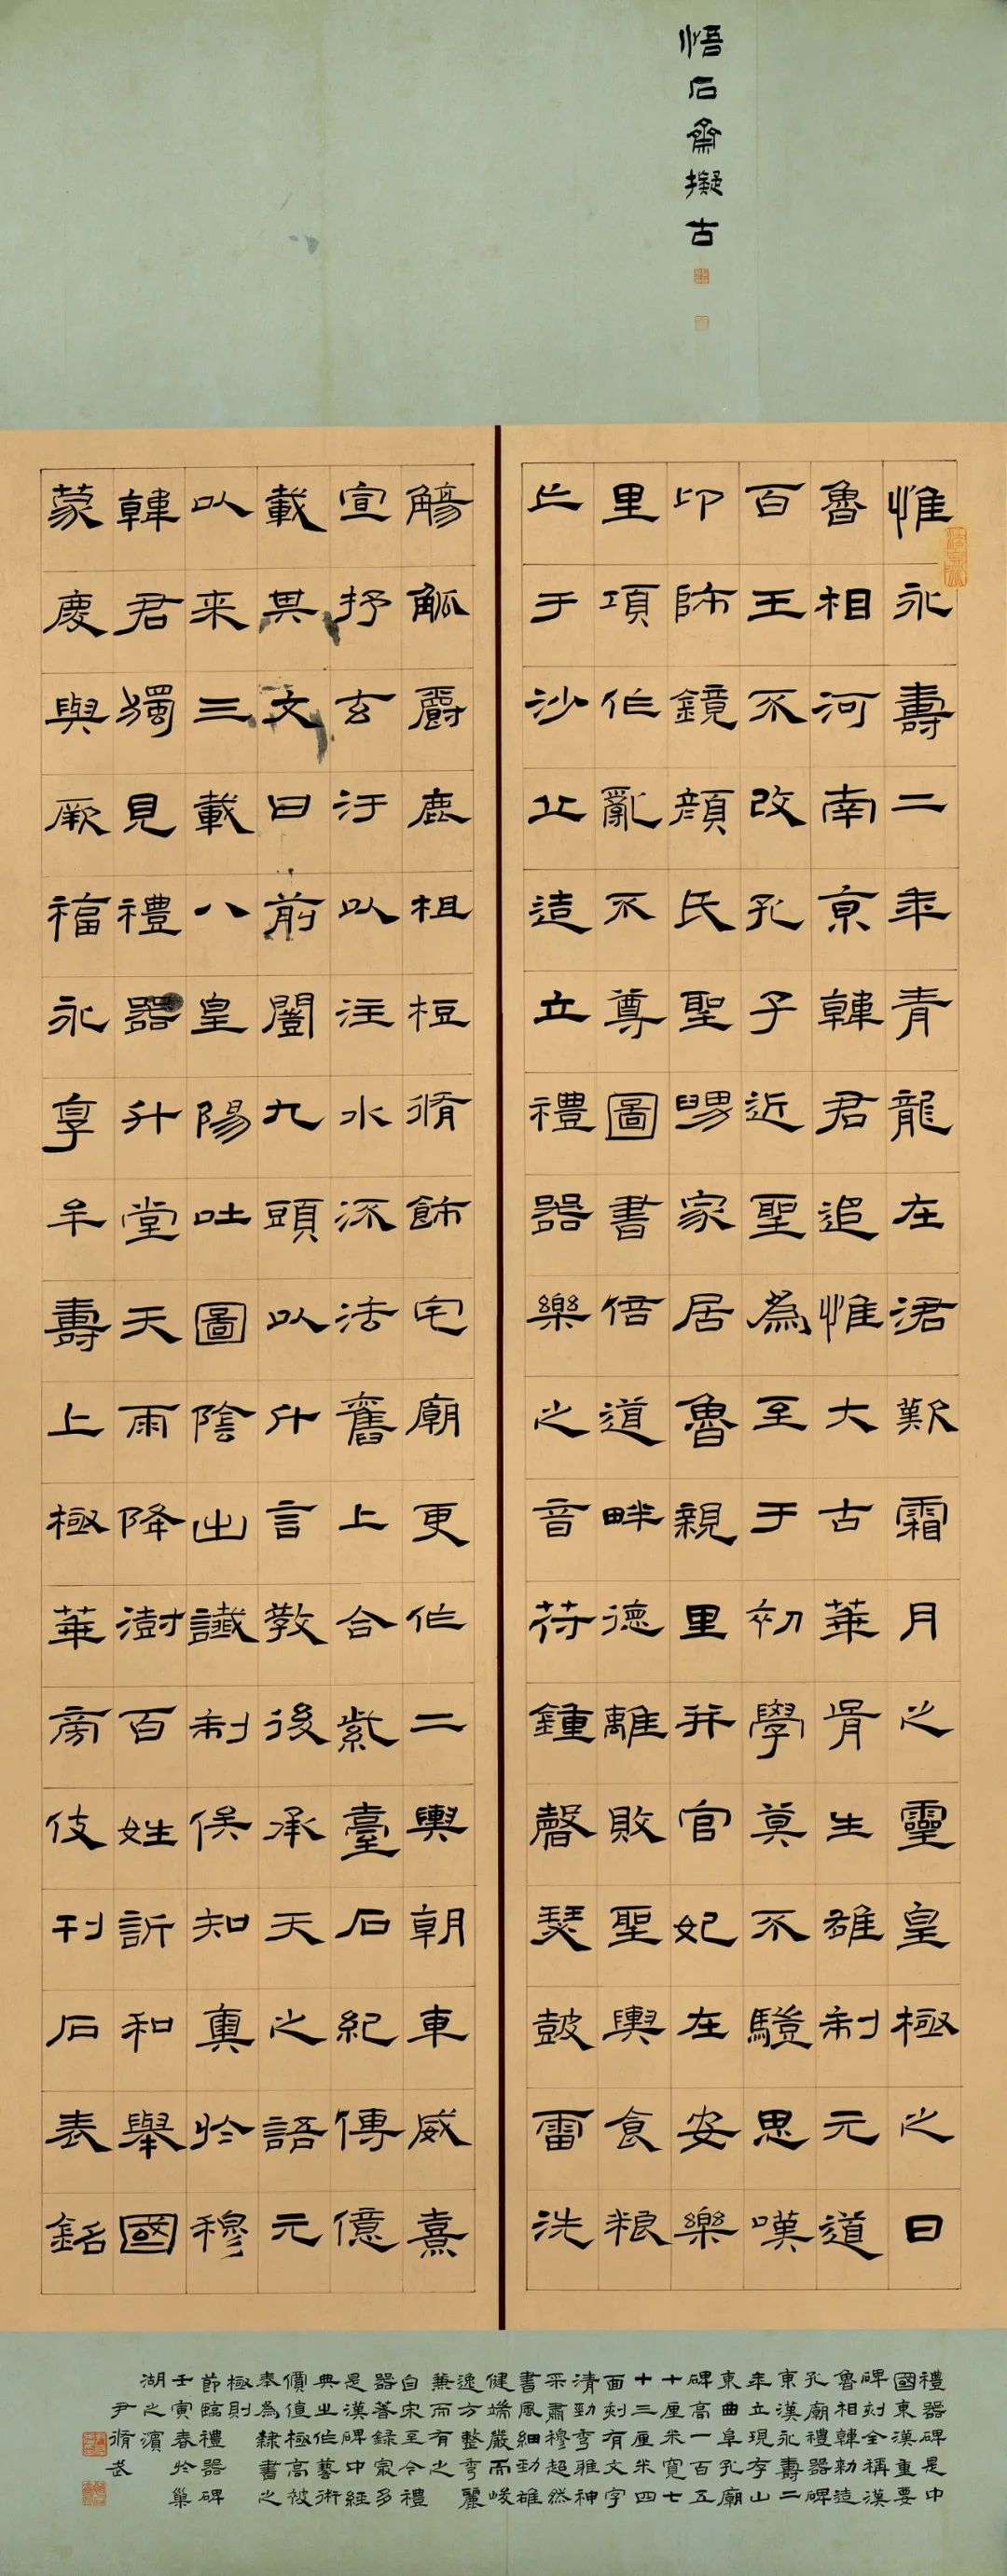 悟石齋擬古
惟永壽二年青龍在涒歎霜月之靈皇極之日
魯相河南京韓君追惟大古華胥生雄制元道
百王不改孔子近聖為至于初學莫不驥思嘆
卬師鏡顏氏聖舅家居魯親里并官妃在安樂
里項作亂不尊圖書倍道畔德離敗聖輿食粮
亡于沙丘造立禮器樂之音苻鍾磬瑟鼓雷洗
觴觚爵鹿柤梪脩飾宅廟更作二輿朝車威熹
宣抒玄汙以注水流法舊上合紫臺石紀傳億
載其文曰前闓九頭以升言教後承天之語元
以来三載八皇陽吐圖陰出讖制俟知奧於穆
韓君獨見禮器升堂天雨降澍百姓訢和舉國
蒙慶與厥福永享牟壽上極華旁伎刊石表銘
禮器碑是中
國東漢重要
碑刻全稱漢
魯相韓勑造
孔廟禮器碑
東漢永壽二
年立現存山
東曲阜孔廟
碑高一百五
十厘米寬七
十三厘米四
面刻有文字
清勁秀雅神
采肅穆超然
書風細勁雄
健端嚴而峻
逸方整秀麗
兼而有之
自宋至今禮
器著錄最多
是漢碑中經
典之作藝術
價值極高被
奉為隸書之
極則
節臨禮器碑
壬寅春於巢
湖之濱
尹脩武